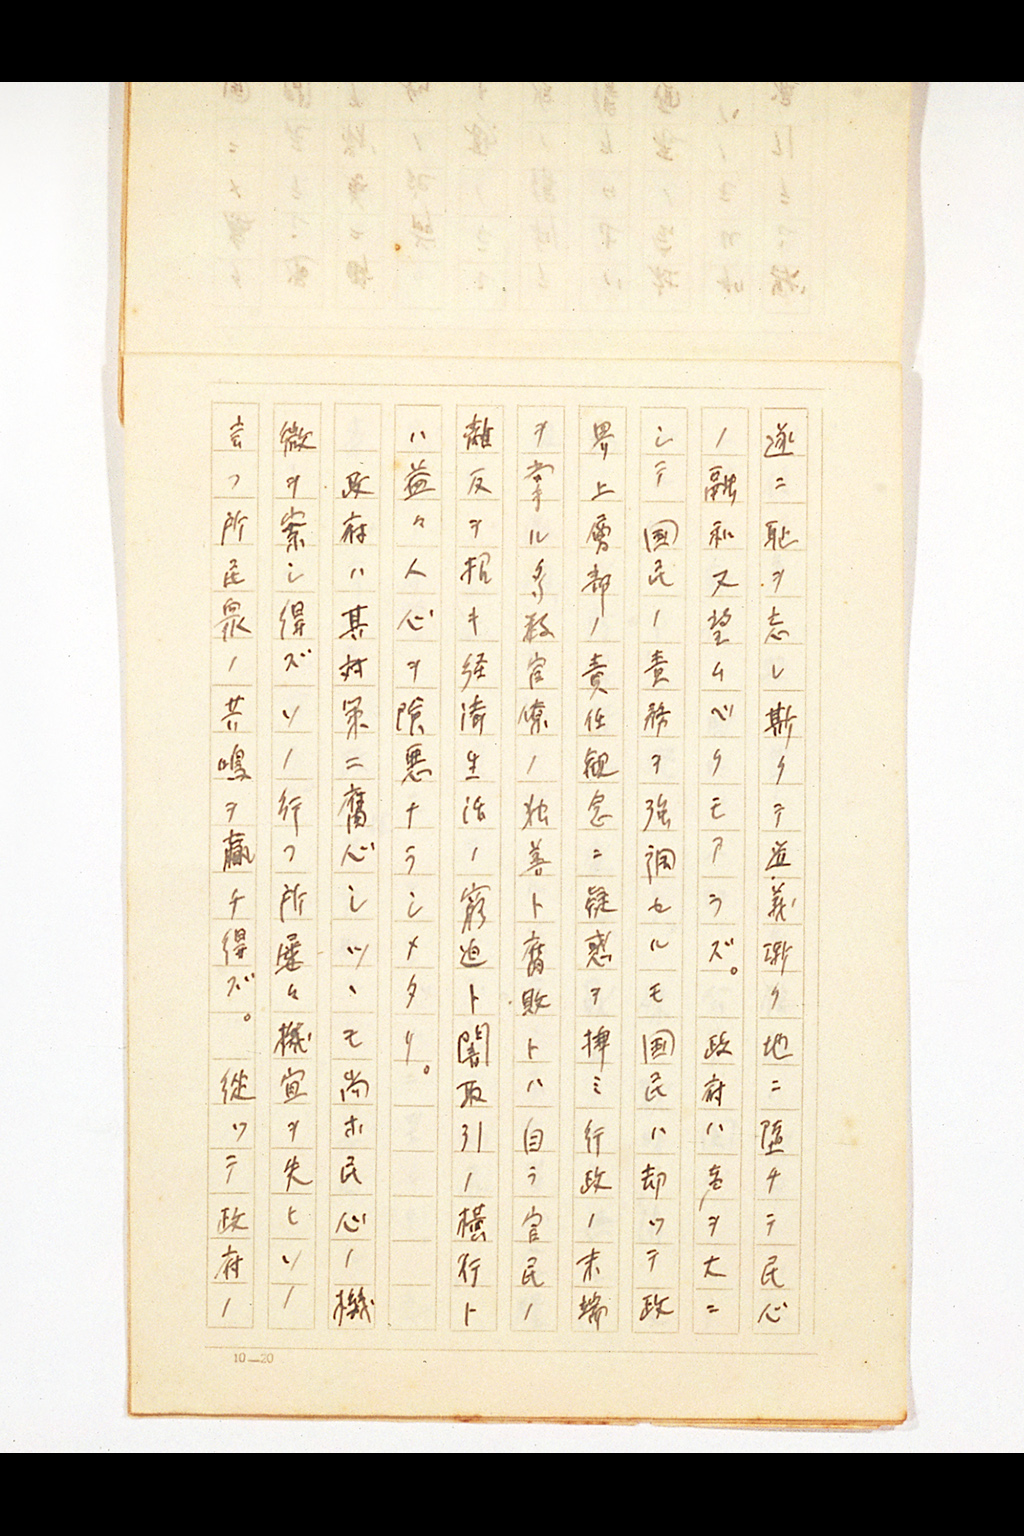 遂ニ恥ヲ忘レ斯クテ道義漸ク地ニ堕チテ民心
ノ融和又望ムベクモアラズ。政府ハ声ヲ大ニ
シテ国民ノ責務ヲ強調セルモ国民ハ却ッテ政
界上層部ノ責任観念ニ疑惑ヲ挿ミ行政ノ末端
ヲ掌ル多数官僚ノ独善ト腐敗トハ自ラ官民ノ
離反ヲ招キ経済生活ノ窮迫ト闇取引ノ横行ト
ハ益々人心ヲ険悪ナラシメタリ。
政府ハ其対策ニ腐心シツヽモ尚ホ民心ノ機
微ヲ察シ得ズソノ行フ所屡々機宜ヲ失ヒソノ
言フ所民衆ノ共鳴ヲ贏チ得ズ。従ッテ政府ノ
10—20